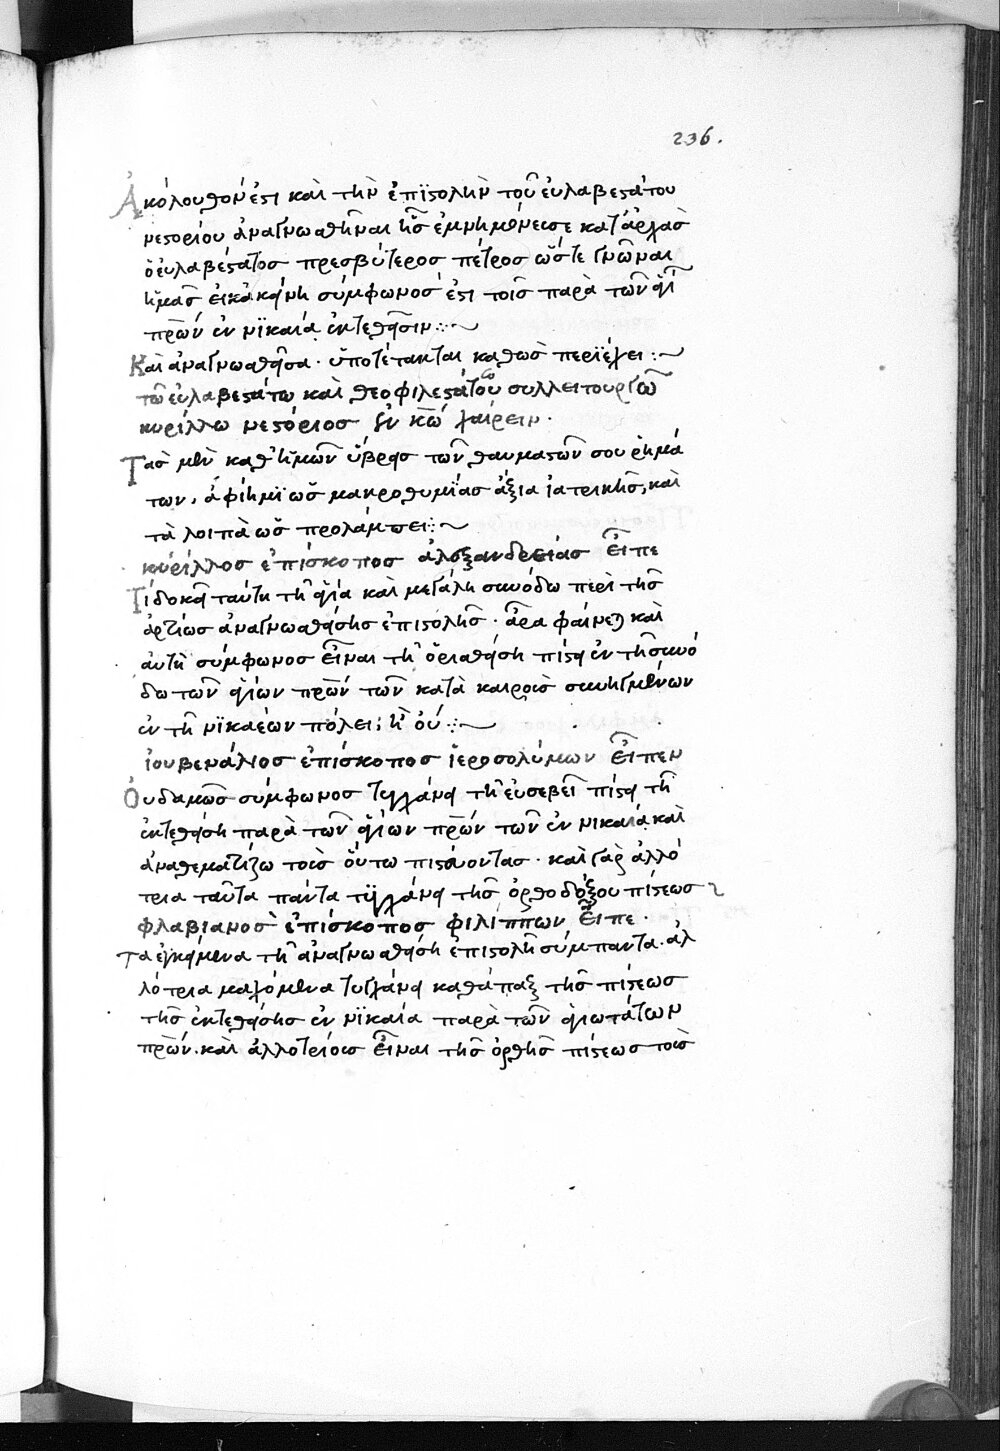 236.
Ἀκόλουθον ἐστι καὶ τὴν ἐπϊστολὴν τοῦ εὐλαβεστάτου
νεστορίου ἀναγνωσθῆναι ἧς ἐμνημόνευσε κατ' ἀρχὰς
ὁ εὐλαβέστατος πρεσβύτερος πέτρος ὥστε γνῶναι
ἡμᾶς εἰ κἀκείνη σύμφωνος ἐστι τοῖς παρὰ τῶν ἁγί
πρῶν ἐν νϊκαία ἐκτεθεῖσιν :~
Καὶ ἀναγνωσθεῖσα · ὑποτέτακται καθὼς περϊέχει :~
τῶ εὐλαβεστάτω καὶ θεοφιλεστάτω συλλειτουργῶ
κυρίλλω νεστόριος ἐν κω χαίρειν ·
Τὰς μὲν καθ' ἡμῶν ὕβρεις τῶν θαυμαστῶν σου ῥημά
των, ἀφίημϊ ὡς μακροθυμίας ἄξια ἰατρικῆς, καὶ
τὰ λοιπὰ ὡς προλάμπει :~
κύρίλλος ἐπίσκοπος ἀλεξανδρείας εἶπε
Τί δοκεῖ ταύτη τῆ ἁγία καὶ μεγάλη συνόδω περὶ τῆς
ἀρτίως ἀναγνωσθείσης ἐπιστολῆς · ἆρα φαίνεται καὶ
αὐτὴ σύμφωνος εἶναι τῆ ὁρισθείση πίστει ἐν τῆ συνό
δω τῶν ἁγίων πρῶν τῶν κατὰ καιροὺς συνηγμένων
ἐν τῆ νϊκαέων πόλει ; ἢ οὔ :~
ἰουβενάλιος ἐπίσκοπος ἱεροσολύμων εἶπεν
Οὐδαμῶς σύμφωνος τυγχάνει τῆ εὐσεβεῖ πίστει τῆ
ἐκτεθείση παρὰ τῶν ἁγίων πρῶν τῶν ἐν νικαία, καὶ
ἀναθεματίζω τοὺς οὕτω πιστεύοντας · καὶ γὰρ ἀλλό
τρια ταῦτα πάντα τϋγχάνει τῆς ὀρθοδόξου πίστεως
φλαβιανὸς ἐπίσκοπος φιλίππων εἶπε ·
Τα ἐγκείμενα τῆ ἀναγνωσθείση ἐπιστολῆ σύμπαντα · ἀλ
λότρια μαχόμενα τυγχάνει καθάπαξ τῆς πίστεως
τῆς ἐκτεθείσης ἐν νϊκαία παρὰ τῶν ἁγιωτάτων
πρῶν · καὶ ἀλλοτρίους εἶναι τῆς ὀρθῆς πίστεως τοὺς